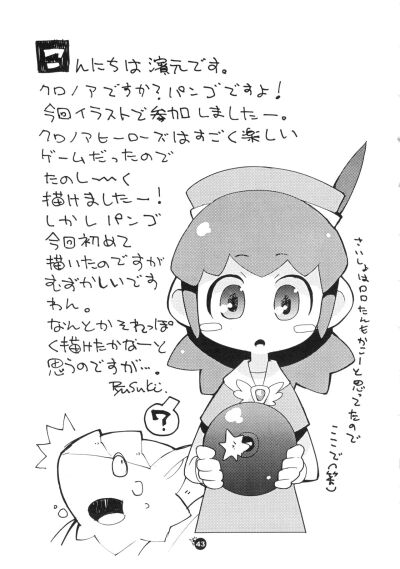 こんにちは濱元です。
クロノアですか？パンゴですよ！
今回イラストで参加しましたー。
クロノアヒーローズはすごく楽しい
ゲームだったので
たのし〜く
描けましたー！
しかしパンゴ
今回初めて
描いたのですが
むずかしいです
わん。
なんとかそれっぽ
く描けたかなーと
思うのですが…。
Ryusuki.
さいしょはロロたんもかこーと思ってたので
ここで(笑)
?
43